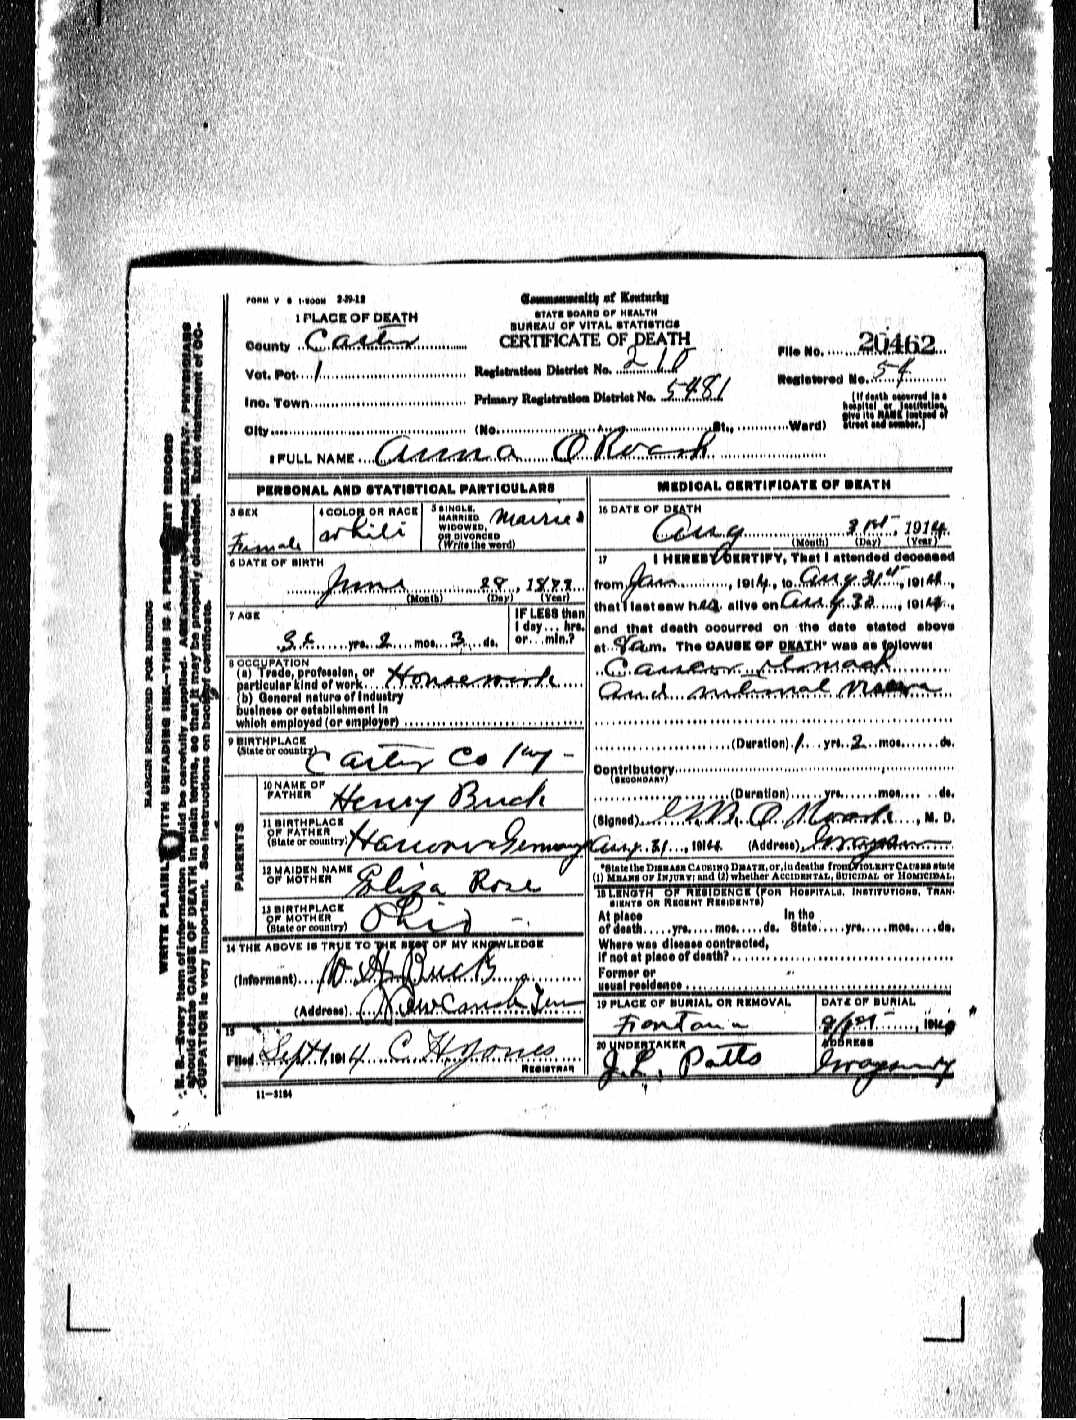 FORM V S 1-500M 2-29-12
Commonwealth of Kentucky
STATE BOARD OF HEALTH
BUREAU OF VITAL STATISTICS
CERTIFICATE OF DEATH
1 PLACE OF DEATH
County Carter
Vot. Pct. 1
Inc. Town
City
Registration District No. 210
Primary Registration District No. 5481
(No. St., Ward)
File No. 20462
Registered No. 54
(If death occurred in a
hospital or institution,
give its NAME instead of
street and number.)
2 FULL NAME Anna O Roark
PERSONAL AND STATISTICAL PARTICULARS
3 SEX
Female
4 COLOR OR RACE
white
5 SINGLE,
MARRIED
WIDOWED,
OR DIVORCED
(Write the word)
Married
6 DATE OF BIRTH
June 28, 18
(Month) (Day) (Year)
7 AGE
yrs. 2 mos. 3 ds.
IF LESS than
1 day... hrs.
or... min.?
8 OCCUPATION
(a) Trade, profession, or
particular kind of work Housework
(b) General nature of industry
business or establishment in
which employed (or employer)
9 BIRTHPLACE
(State or country) Carter Co Ky -
PARENTS
10 NAME OF
FATHER Henry Buck
11 BIRTHPLACE
OF FATHER
(State or country) Hanover Germany
12 MAIDEN NAME
OF MOTHER Eliza Rose
13 BIRTHPLACE
OF MOTHER
(State or country) Ohio -
14 THE ABOVE IS TRUE TO THE BEST OF MY KNOWLEDGE
(Informant) H Buck
(Address)
15
Filed Sept 1, 1914 C H Jones
REGISTRAR
11-3184
MEDICAL CERTIFICATE OF DEATH
16 DATE OF DEATH
Aug 31st, 1914
(Month) (Day) (Year)
17 I HEREBY CERTIFY, That I attended deceased
from Jan, 1914, to Aug 31st, 1914,
that I last saw her alive on Aug 30, 1914,
and that death occurred on the date stated above
at 8 am. The CAUSE OF DEATH* was as follows:
Cancer stomach
and
(Duration) 1 yrs. 2 mos. ds.
Contributory
(SECONDARY)
(Duration) yrs. mos. ds.
(Signed) O Roark, M. D.
Aug. 31, 1914 (Address) Grayson
*State the DISEASE CAUSING DEATH, or, in deaths from VIOLENT CAUSES state
(1) MEANS OF INJURY; and (2) whether ACCIDENTAL, SUICIDAL or HOMICIDAL.
18 LENGTH OF RESIDENCE (FOR HOSPITALS, INSTITUTIONS, TRAN-
SIENTS OR RECENT RESIDENTS)
At place In the
of death yrs. mos. ds. State yrs. mos. ds.
Where was disease contracted,
if not at place of death?
Former or
usual residence
19 PLACE OF BURIAL OR REMOVAL
Fontana
DATE OF BURIAL
9/1st, 1914
20 UNDERTAKER
J. L. Patts
ADDRESS
Grayson Ky
MARGIN RESERVED FOR BINDING
WRITE PLAINLY WITH UNFADING INK—THIS IS A PERMANENT RECORD
N. B.—Every item of information should be carefully supplied. AGE should be stated EXACTLY. PHYSICIANS
should state CAUSE OF DEATH in plain terms, so that it may be properly classified. Exact statement of OC-
CUPATION is very important. See instructions on back of certificate.